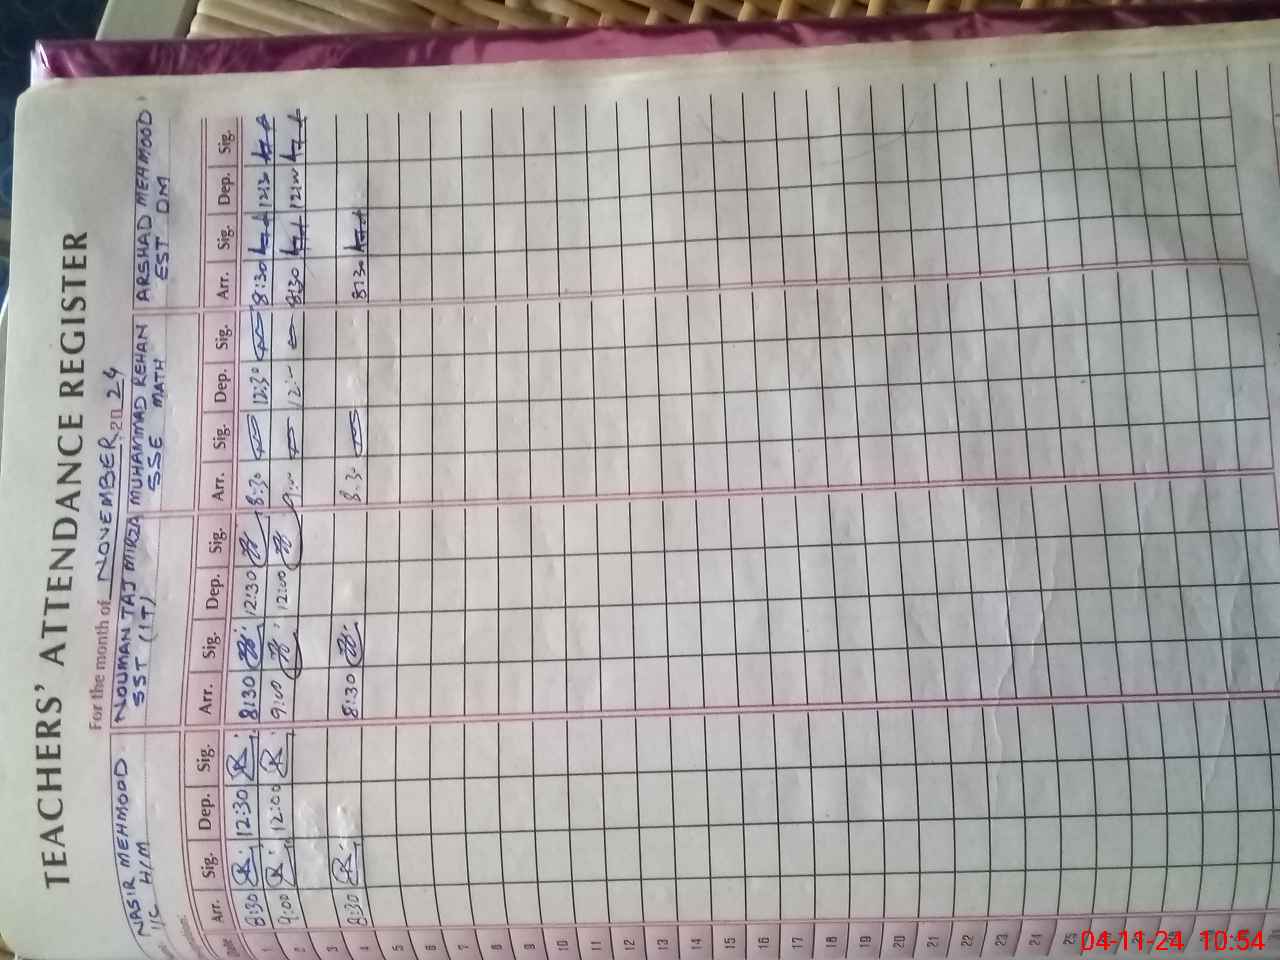 TEACHERS' ATTENDANCE REGISTER
For the month of NOVEMBER, 20 24
NASIR MEHMOOD NOUMAN TAJ MIRZA MUHAMMAD REHAN ARSHAD MEHMOOD
I/C H/M SST (IT) SSE MATH EST DM
Date Arr. Sig. Dep. Sig. Arr. Sig. Dep. Sig. Arr. Sig. Dep. Sig. Arr. Sig. Dep. Sig.
1 8:30 12:30 8:30 12:30 8:30 12:30 8:30 12:30
2 9:00 12:00 9:00 12:00 9:00 8:30
3
4 8:30 8:30 8:30 8:30
5
6
7
8
9
10
11
12
13
14
15
16
17
18
19
20
21
22
23
24
25
04-11-24 10:54